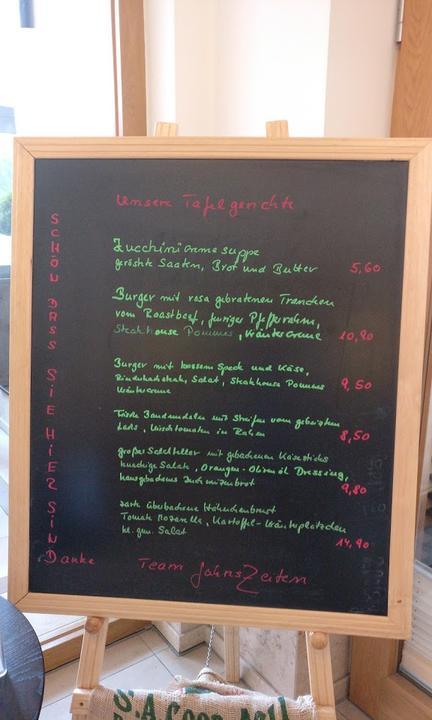 Unsere Tafelgerichte
SCHÖN DASS SIE HIER SIND
Zucchinicremesuppe
geröstete Saaten, Brot und Butter 5,60
Burger mit rosa gebratenen Tranchen
vom Roastbeef, Pfefferrahm,
Steakhouse Pommes, Kräutercreme 10,90
Burger mit krossem Speck und Käse,
Rinderhacksteak, Salat, Steakhouse Pommes 9,50
Kräutercreme
Bandnudeln mit Streifen vom gebeizten
Lachs, Kirschtomaten in Rahm 8,50
großer Salatteller mit gebackenen Käsesticks
Salate, Orangen-Olivenöl Dressing,
hausgebackenes 9,80
zarte überbackene Hähnchenbrust
Tomate Mozarella, Kartoffel-Kräuterplätzchen
kl. gem. Salat 14,90
Danke
Team JahnsZeiten
S.A